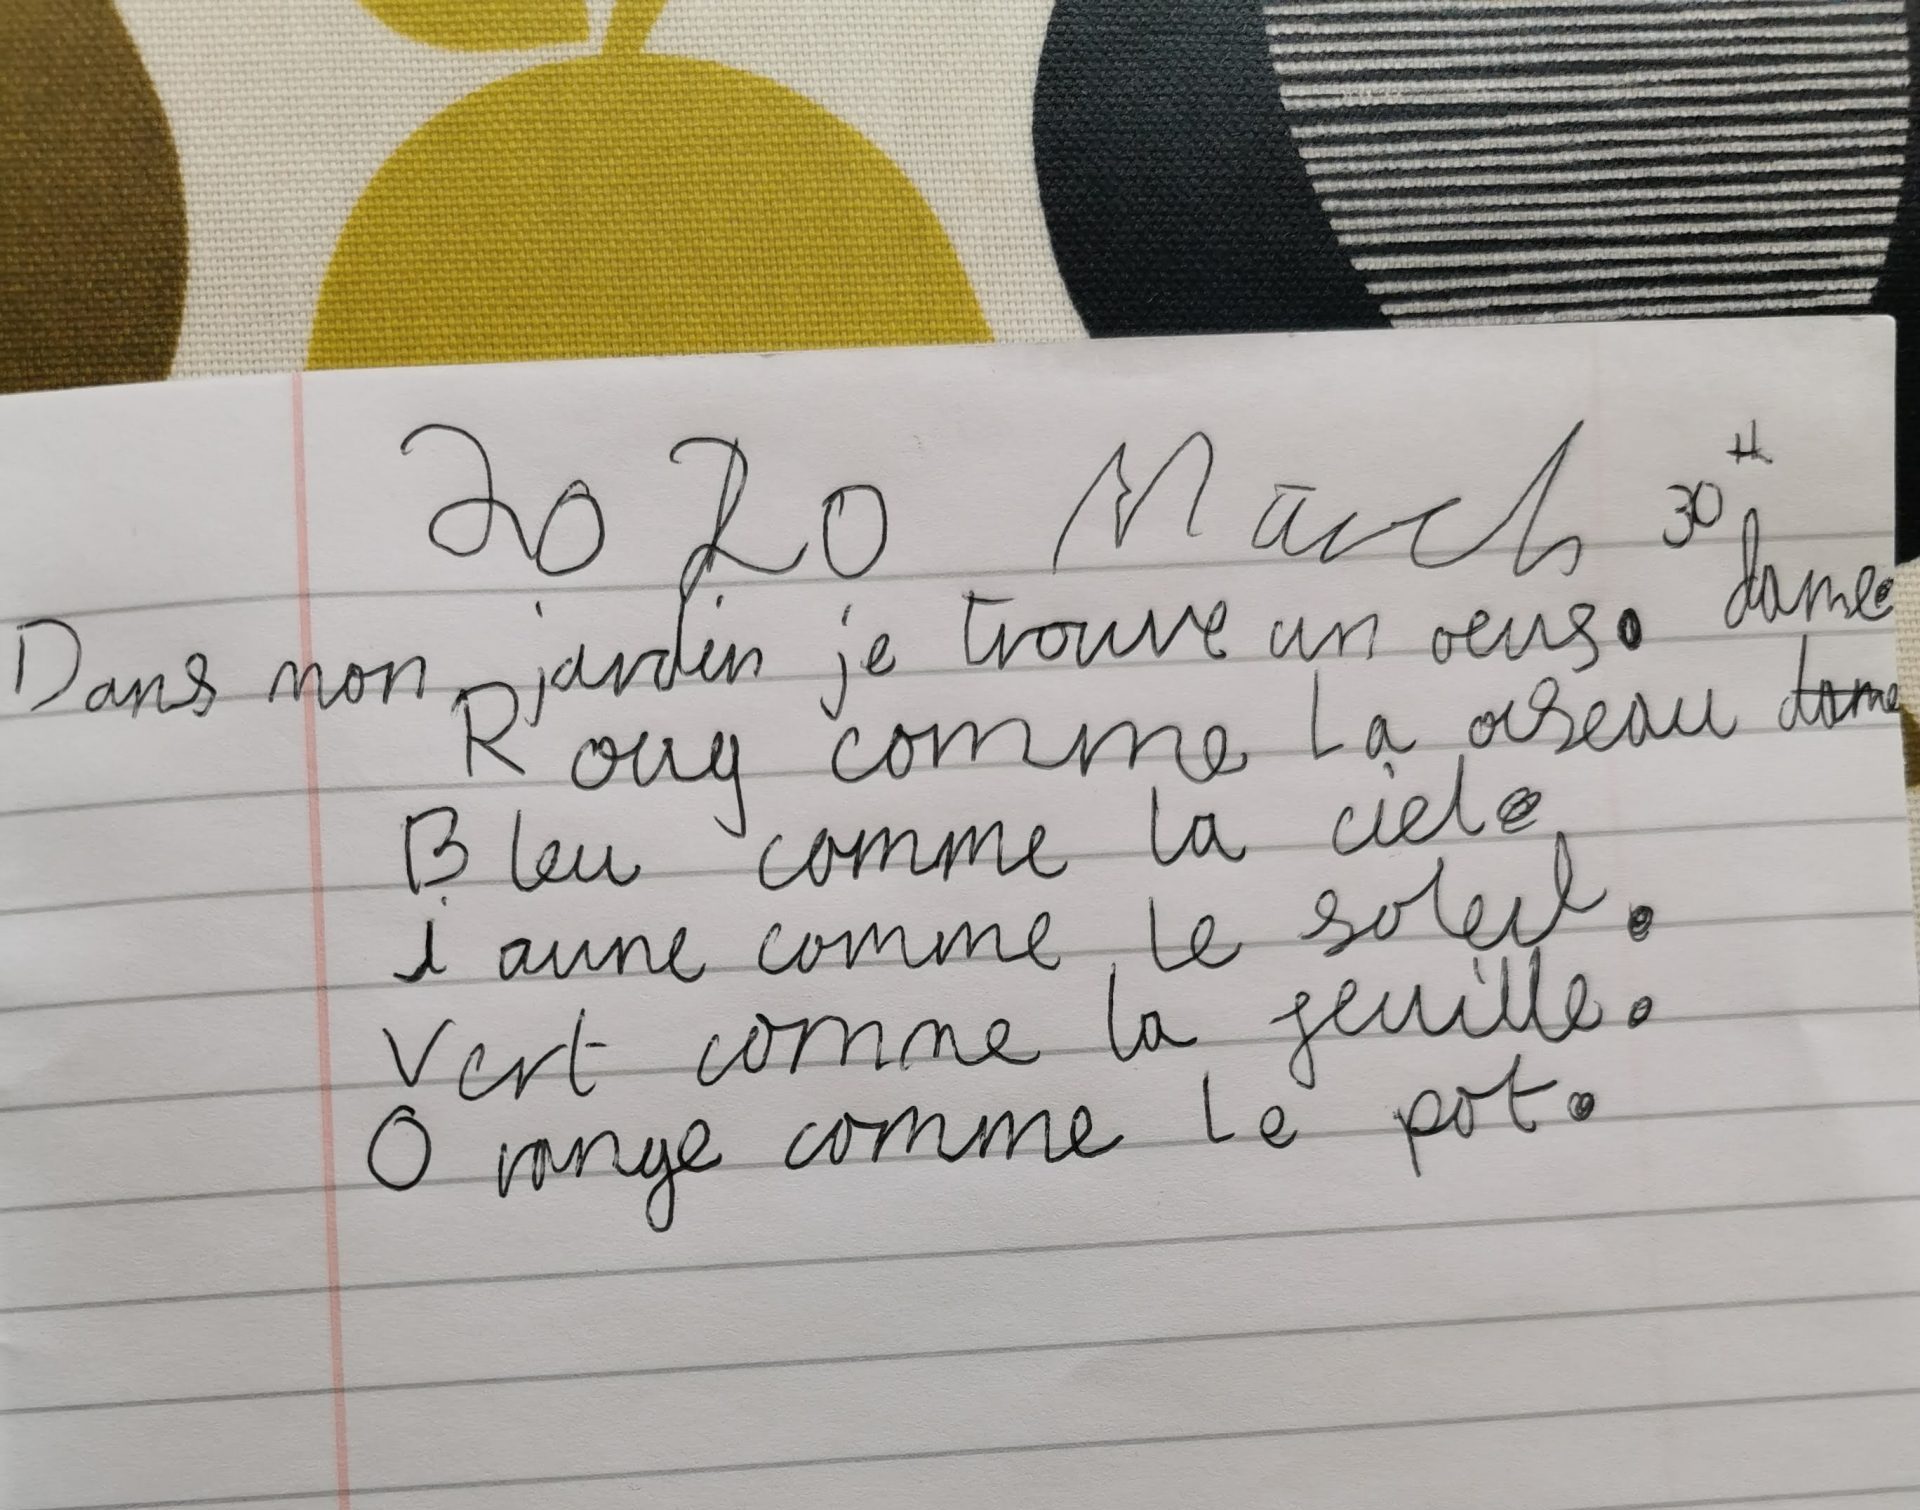 2020 March 30th
Dans mon jardin je trouve un oeuf. dame.
Roug comme la oiseau dame
Bleu comme la ciel.
jaune comme le soleil.
Vert comme la feuille.
Orange comme le pot.